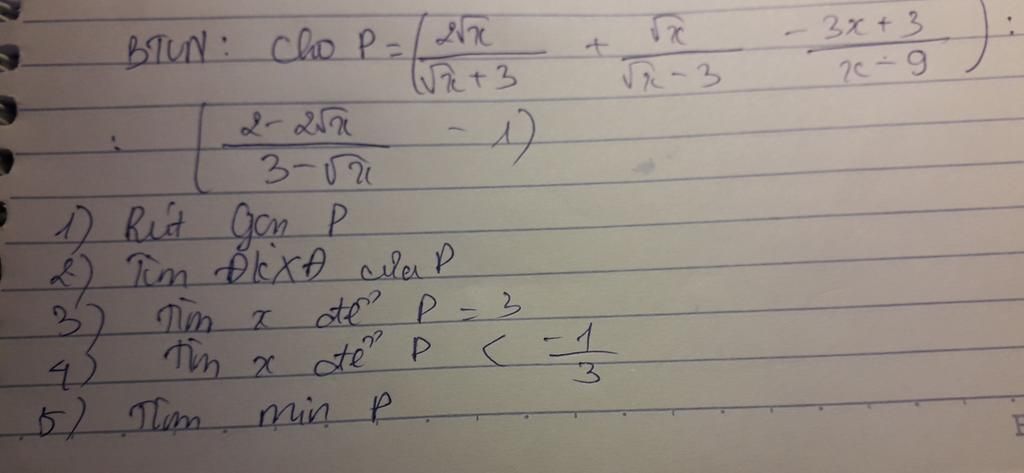 BTVN: Cho P = (2√x / √x + 3 + √x / √x - 3 - 3x + 3 / x - 9) :
: (2 - 2√x / 3 - √x - 1)
1) Rút gọn P
2) Tìm ĐKXĐ của P
3) Tìm x để P = 3
4) Tìm x để P < -1/3
5) Tìm min P